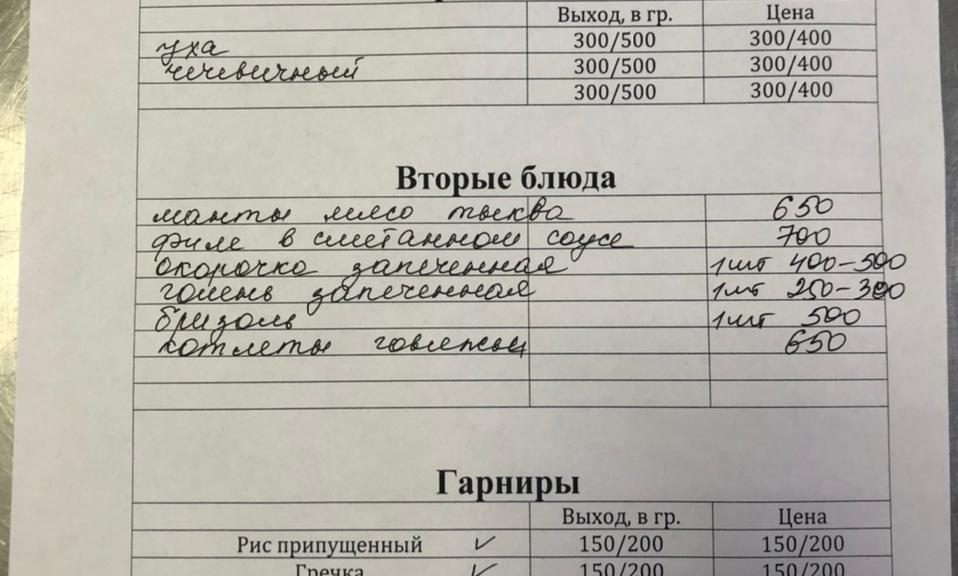 Выход, в гр. Цена
уха 300/500 300/400
чечевичный 300/500 300/400
300/500 300/400
Вторые блюда
манты мясо тыква 650
филе в сметанном соусе 700
окорочко запеченная 1шт 400-500
голень запеченная 1шт 250-300
бризоль 1шт 500
котлеты говяжьи 650
Гарниры
Выход, в гр. Цена
Рис припущенный ✓ 150/200 150/200
Гречка ✓ 150/200 150/200